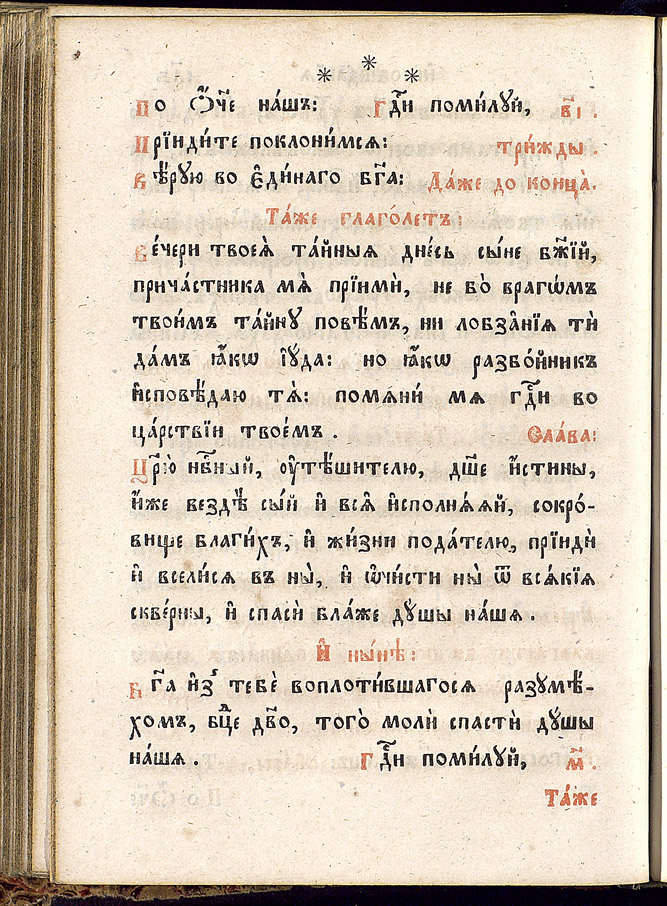 * * *
По Ѻ҆́ч҃е на́шъ: Гдⷭ҇и поми́лꙋй, в҃і .
Прїиди́те поклони́мсѧ: три́жды .
Вѣ́рꙋю во є҆ди́наго бг҃а: Да́же до конца̀.
Та́же глаго́летъ:
Ве́чери твоеѧ̀ та́йныѧ дне́сь сы́не бж҃їй,
прича́стника мѧ̀ прїимѝ, не бо̀ врагѡ́мъ
твои́мъ та́йнꙋ повѣ́мъ, ни лобза́нїѧ тѝ
да́мъ ꙗ҆́кѡ і҆ꙋ́да: но ꙗ҆́кѡ разбо́йникъ
и҆сповѣ́даю тѧ̀: помѧнѝ мѧ гдⷭ҇и во
ца́рствїи твое́мъ . Сла́ва:
Цр҃ю̀ нб҃ный, ᲂу҆тѣ́шителю, дш҃е и҆́стины,
и҆́же вездѣ̀ сы́й и҆ всѧ̑ и҆сполнѧ́ѧй, сокро́-
вище благи́хъ, и҆ жи́зни пода́телю, прїидѝ
и҆ всели́сѧ въ ны̀, и҆ ѡ҆чи́сти ны̀ ѿ всѧ́кїѧ
скве́рны, и҆ спасѝ бла́же дꙋ́шы на́шѧ
И҆ ны́нѣ:
Бг҃а и҆з̾ тебє̀ воплоти́вшагосѧ разꙋмѣ́-
хомъ, бцⷣе дв҃о, того̀ молѝ спастѝ дꙋ́шы
на́шѧ . Гдⷭ҇и поми́лꙋй, м҃ .
Та́же